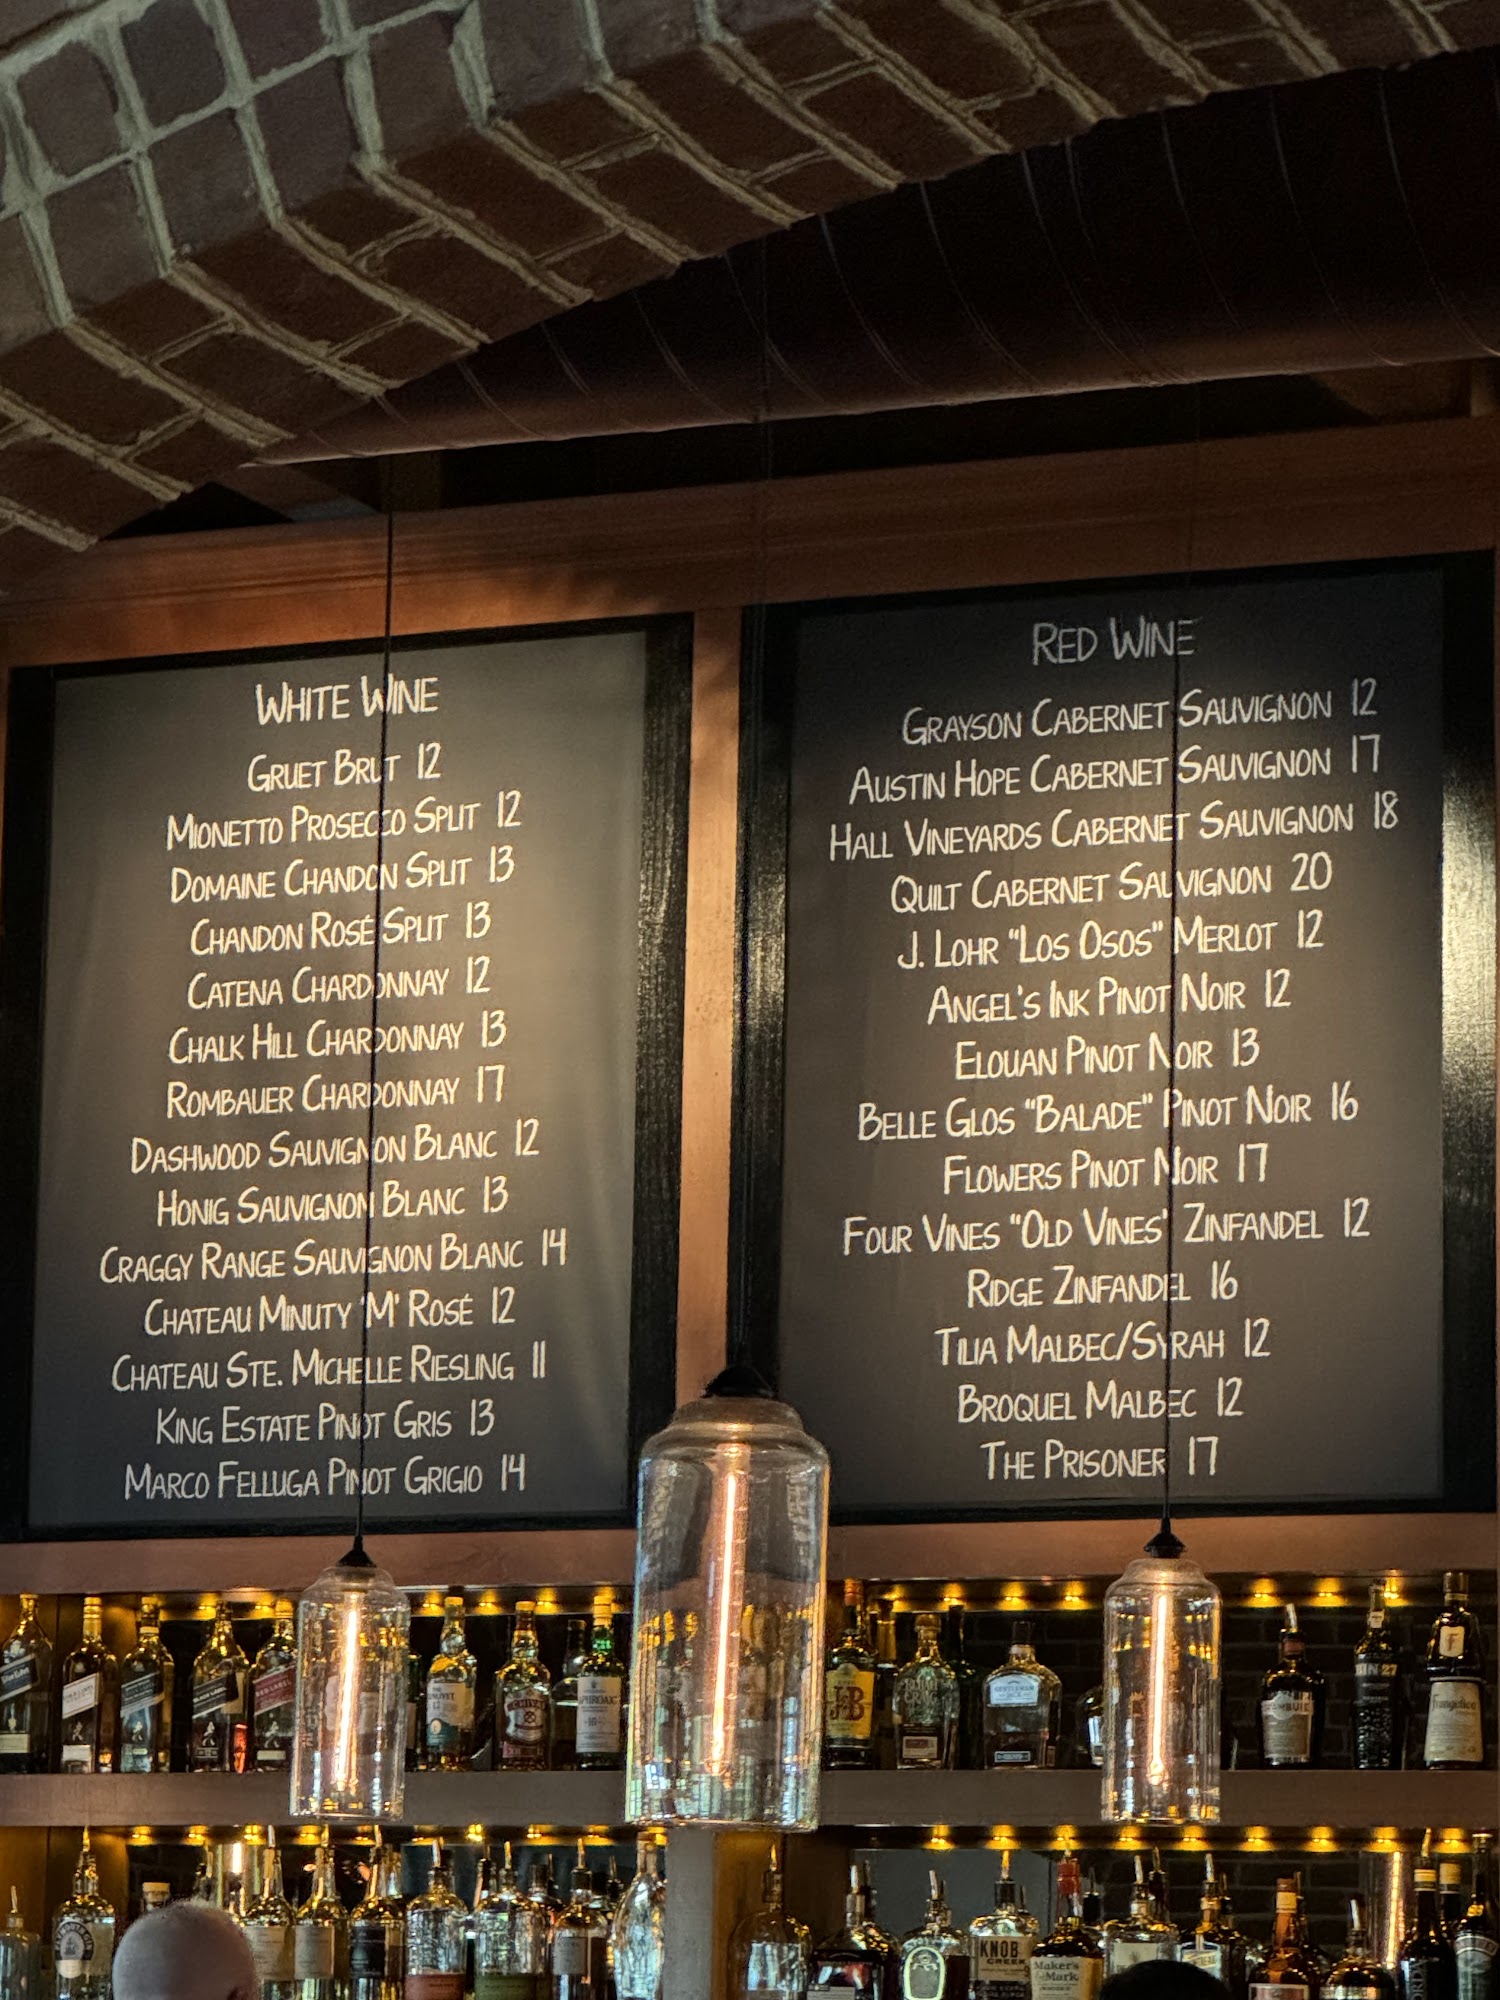 White Wine
Gruet Brut 12
Mionetto Prosecco Split 12
Domaine Chandon Split 13
Chandon Rosé Split 13
Catena Chardonnay 12
Chalk Hill Chardonnay 13
Rombauer Chardonnay 17
Dashwood Sauvignon Blanc 12
Honig Sauvignon Blanc 13
Craggy Range Sauvignon Blanc 14
Chateau Minuty 'M' Rosé 12
Chateau Ste. Michelle Riesling 11
King Estate Pinot Gris 13
Marco Felluga Pinot Grigio 14
Red Wine
Grayson Cabernet Sauvignon 12
Austin Hope Cabernet Sauvignon 17
Hall Vineyards Cabernet Sauvignon 18
Quilt Cabernet Sauvignon 20
J. Lohr "Los Osos" Merlot 12
Angel's Ink Pinot Noir 12
Elouan Pinot Noir 13
Belle Glos "Balade" Pinot Noir 16
Flowers Pinot Noir 17
Four Vines "Old Vines' Zinfandel 12
Ridge Zinfandel 16
Tilia Malbec/Syrah 12
Broquel Malbec 12
The Prisoner 17
BLACK LABEL
RED LABEL
CHIVAS
J&B
GENTLEMAN
JACK
BIN 27
Frangelico
KNOB
CREEK
Maker's
Mark